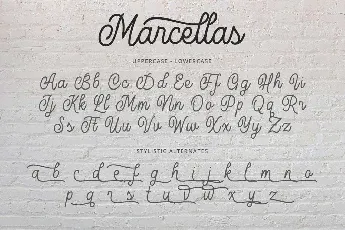 Marcellas
UPPERCASE - LOWERCASE
Aa Bb Cc Dd Ee Ff Gg Hh Ii
Jj Kk Ll Mm Nn Oo Pp Qq Rr
Ss Tt Uu Vv Ww Xx Yy Zz
STYLISTIC ALTERNATES
a b c d e f g h i j k l m n o
p q r s t u v w x y z